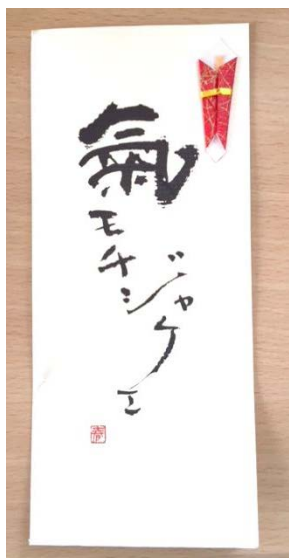 氣モチ
ジャケエ